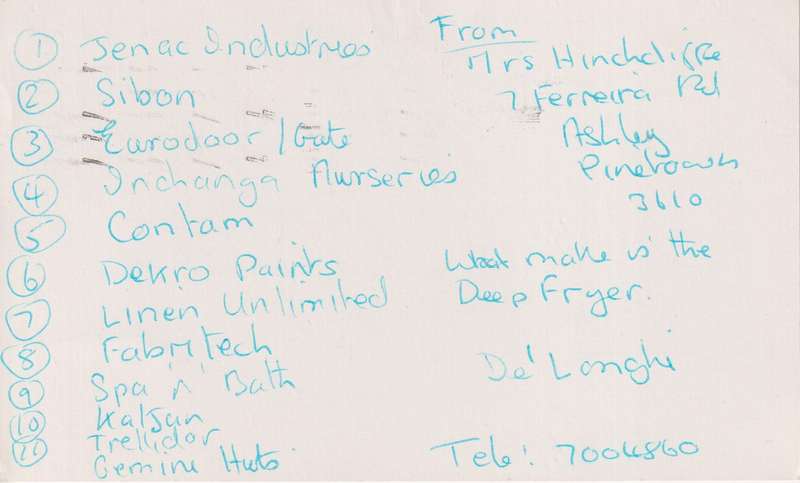 1 Jenac Industries
2 Sibon
3 Eurodoor/Gate
4 Inchanga Nurseries
5 Contam
6 Dekro Paints
7 Linen Unlimited
8 Fabritech
9 Spa 'n' Bath
10 Kalsan
11 Trellidor
Gemini Huts
From
Mrs Hinchcliffe
7 Ferreira Rd
Ashley
Pinetown
3610
What make is the
Deep Fryer.
De'Longhi
Tele: 7004860